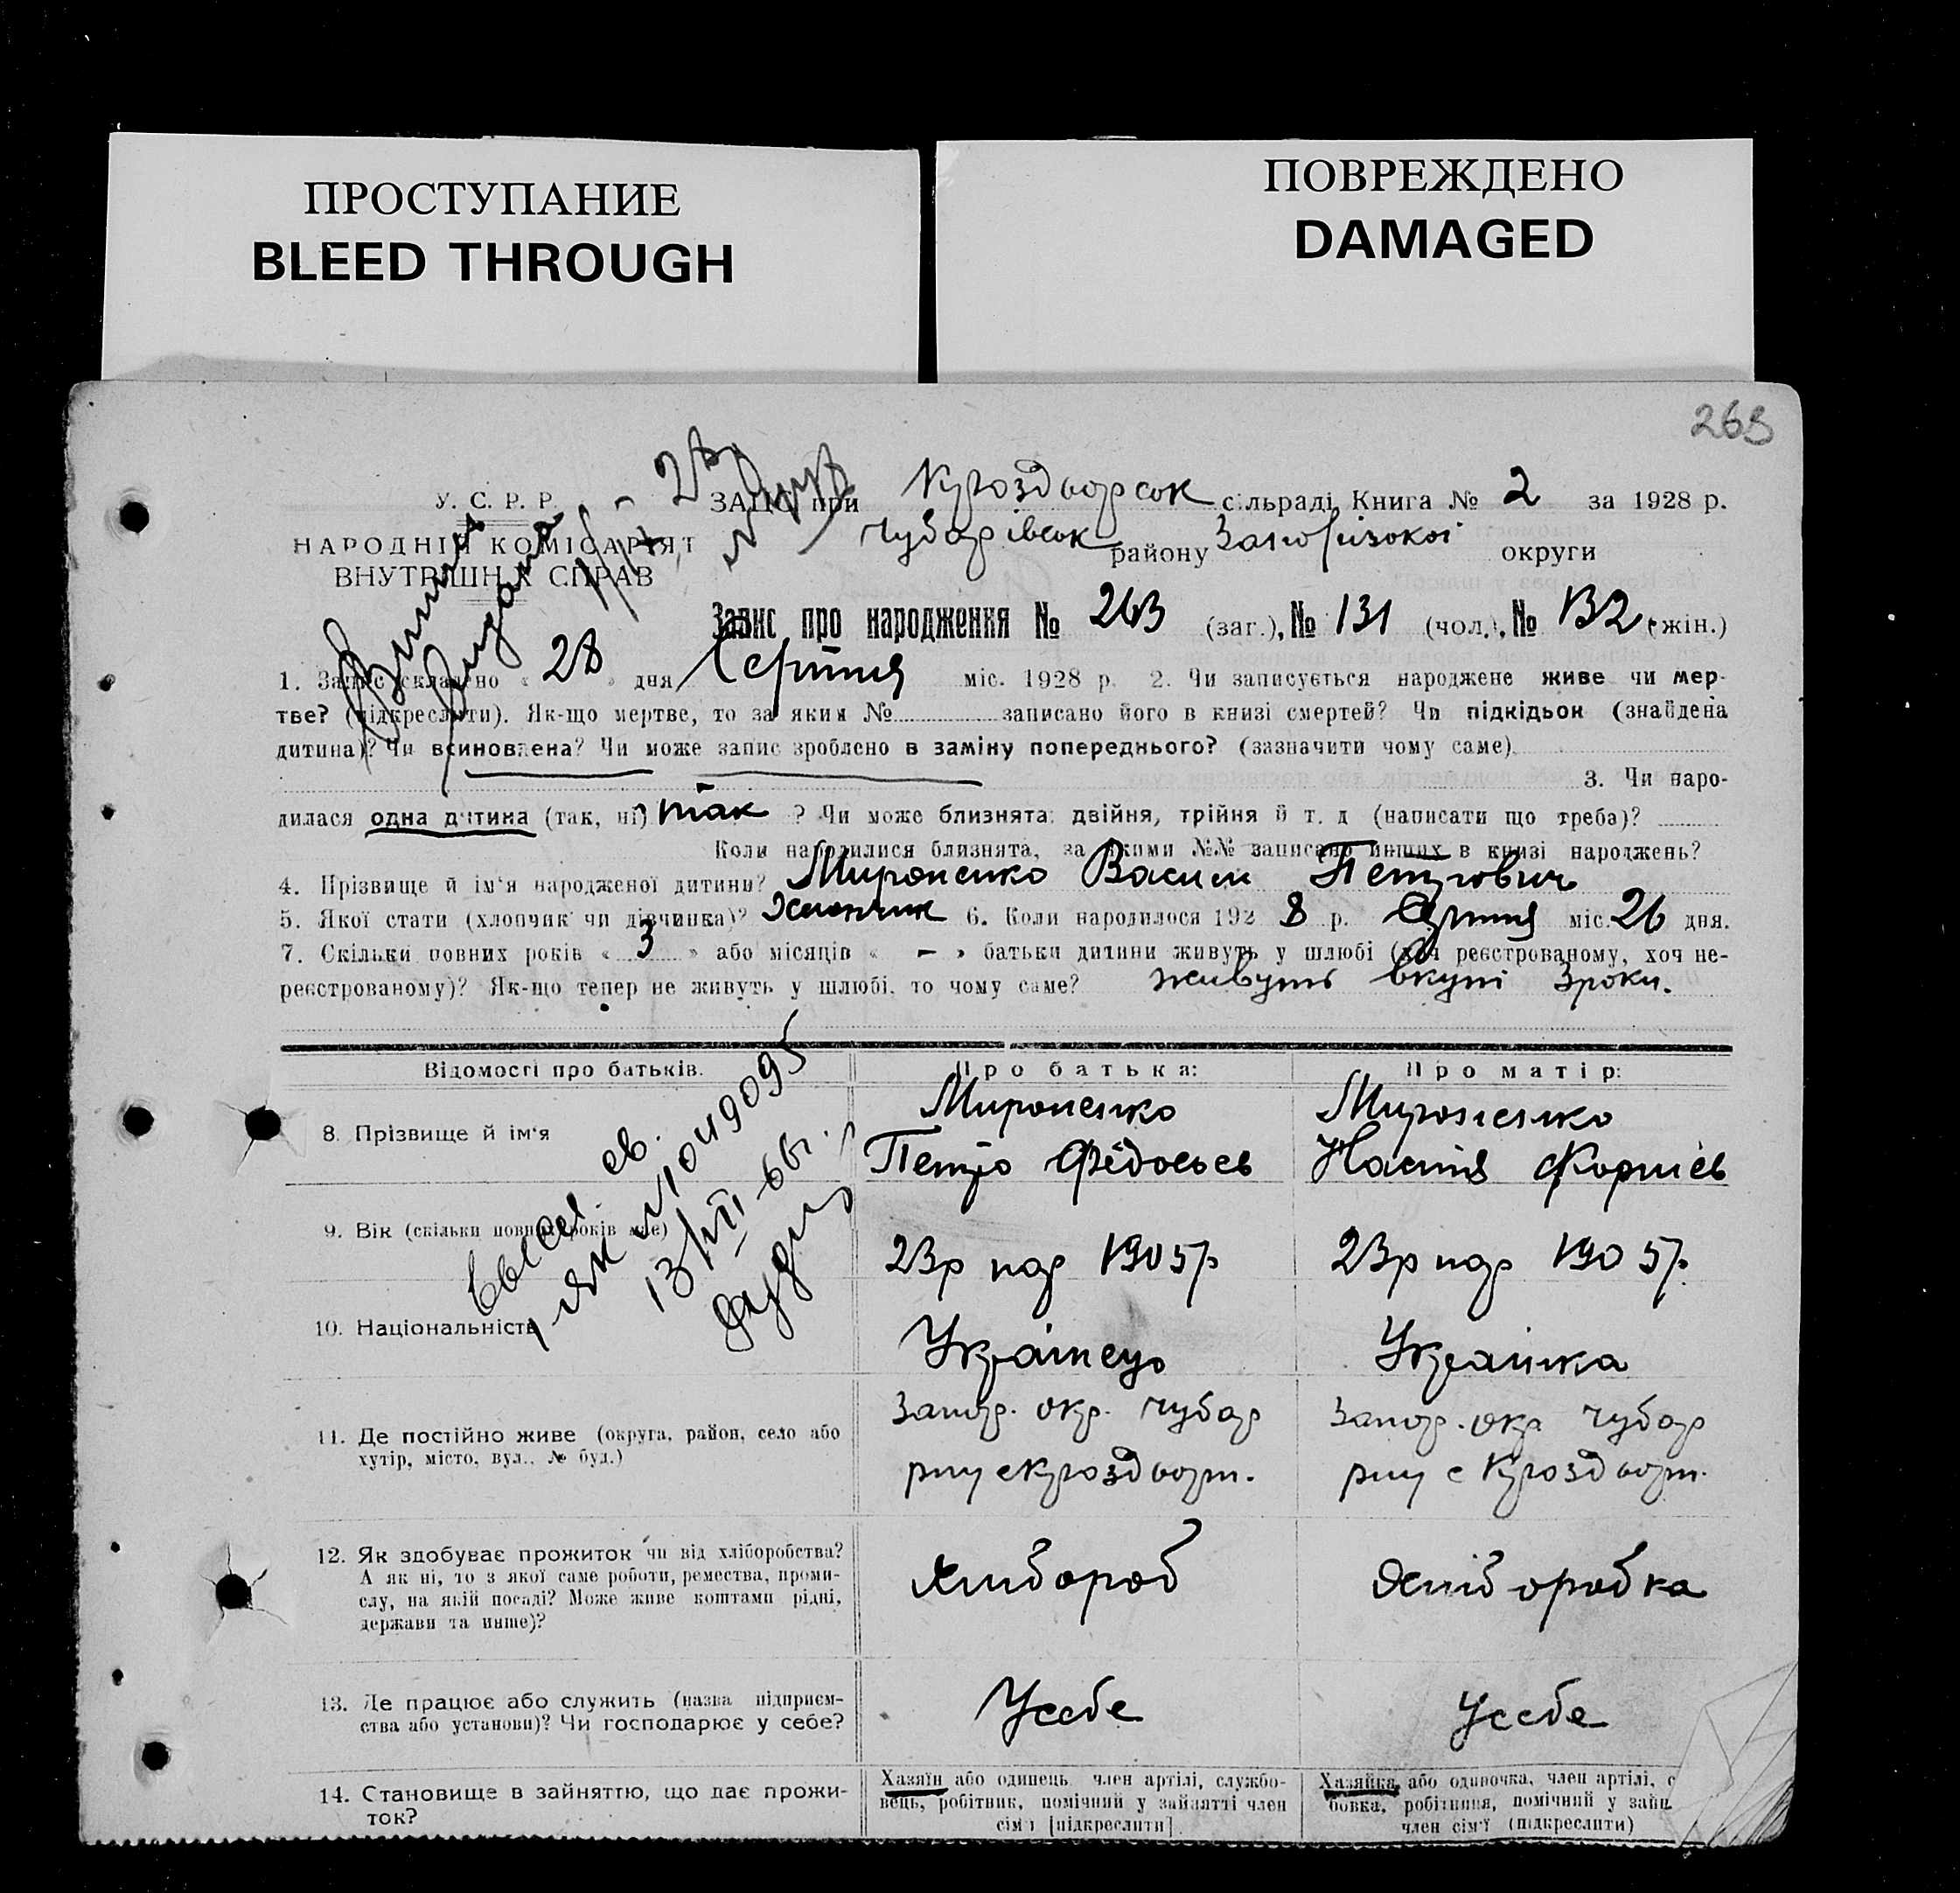 ПРОСТУПАНИЕ
BLEED THROUGH
ПОВРЕЖДЕНО
DAMAGED
263
У. С. Р. Р.
НАРОДНІЙ КОМІСАРІЯТ
ВНУТРІШНІХ СПРАВ
ЗАЦС при сільраді Книга № 2 за 1928 р.
Чубарівськ району Запорізької округи
Запис про народження № 263 (заг.), № 131 (чол.), № 132 (жін.)
1. Запис складено « 28 » дня Серпня міс. 1928 р. 2. Чи записується народжене живе чи мер-
тве? (підкреслити). Як-що мертве, то за яким № записано його в книзі смертей? Чи підкідьок (знайдена
дитина)? Чи всиновлена? Чи може запис зроблено в заміну попереднього? (зазначити чому саме)
3. Чи наро-
дилася одна дитина (так, ні) так ? Чи може близнята: двійня, трійня й т. д (написати що треба)?
Коли народилися близнята, за якими №№ записано инших в книзі народжень?
4. Прізвище й ім'я народженої дитини? Мироненко Василь Петрович
5. Якої стати (хлопчик чи дівчинка)? Хлопчик 6. Коли народилося 192 8 р. Серпня міс. 26 дня.
7. Скільки повних років « 3 » або місяців « — » батьки дитини живуть у шлюбі (хоч реєстрованому, хоч не-
реєстрованому)? Як-що тепер не живуть у шлюбі, то чому саме? живуть вкупі 3 роки.
Відомості про батьків.
Про батька:
Про матір:
8. Прізвище й ім'я
Мироненко
Петро Федосьєв
Мироненко
Настя Корнієв
9. Вік (скільки повних років має)
23р нар 1905р
23р нар 1905р.
10. Національність
Українець
Українка
11. Де постійно живе (округа, район, село або
хутір, місто, вул., № буд.)
Запор. окр. Чубар
Запор. окр Чубар
12. Як здобуває прожиток чи від хліборобства?
А як ні, то з якої саме роботи, ремества, проми-
слу, на якій посаді? Може живе коштами рідні,
держави та инше)?
Хлибороб
Хліборобка
13. Де працює або служить (назва підприєм-
ства або установи)? Чи господарює у себе?
Усебе
Усебе
14. Становище в зайняттю, що дає прожи-
ток?
Хазяїн або одинець член артілі, службо-
вець, робітник, помічний у зайнятті член
сім'ї [підкреслити]
Хазяйка, або одиночка, член артілі, с
бовка, робітниця, помічний у зайн
член сім'ї (підкреслити)
№ 1049095
13/VII-66г.